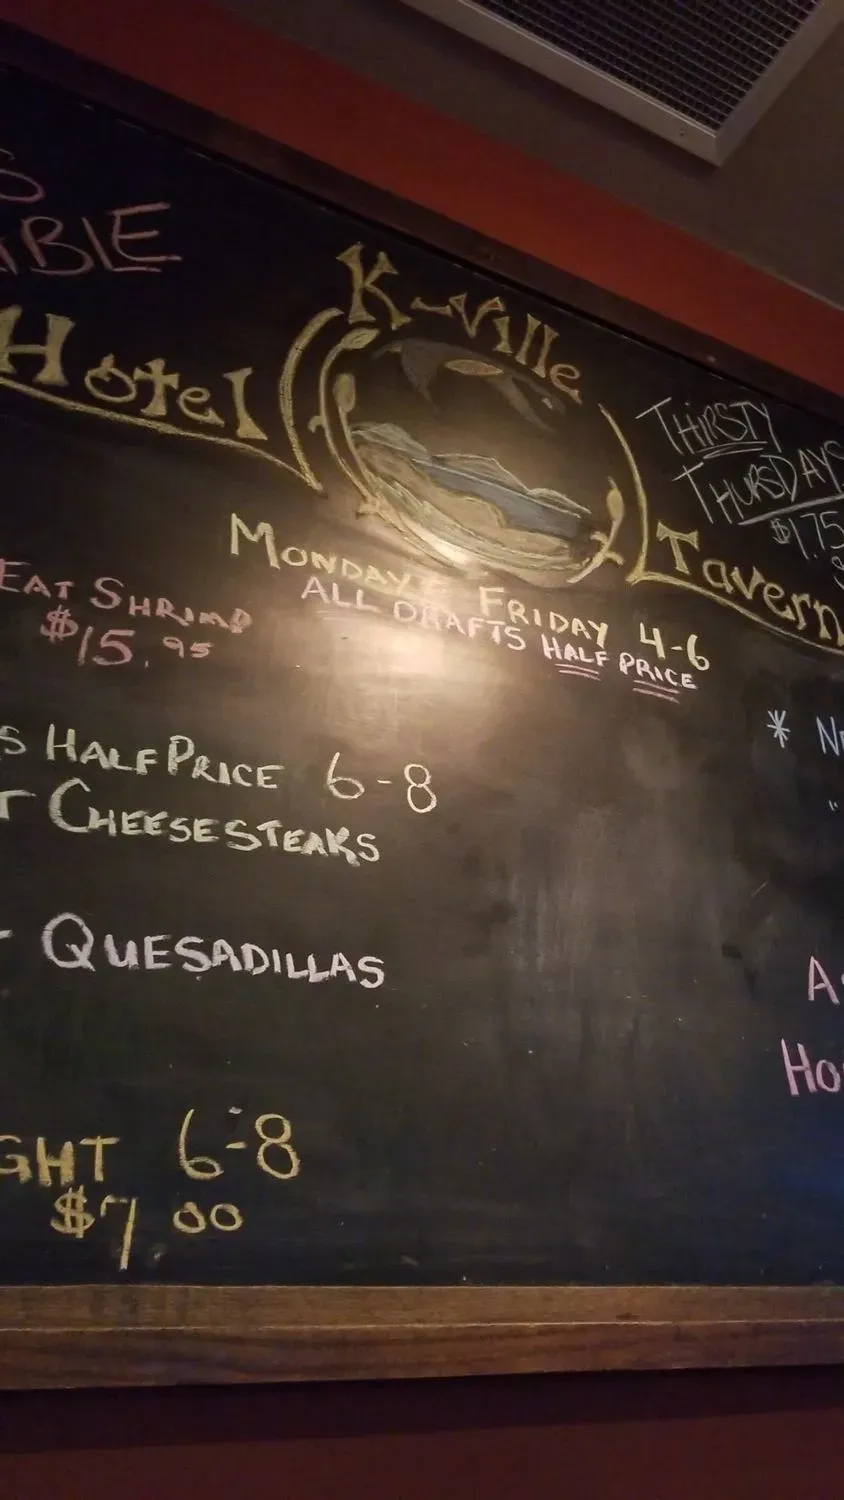 K-Ville
Hotel
Tavern
THIRSTY
THURSDAYS
$1.75
MONDAY - FRIDAY 4-6
ALL DRAFTS HALF PRICE
EAT SHRIMP
$15.95
S HALF PRICE 6-8
CHEESESTEAKS
- QUESADILLAS
GHT 6-8
$7.00
*